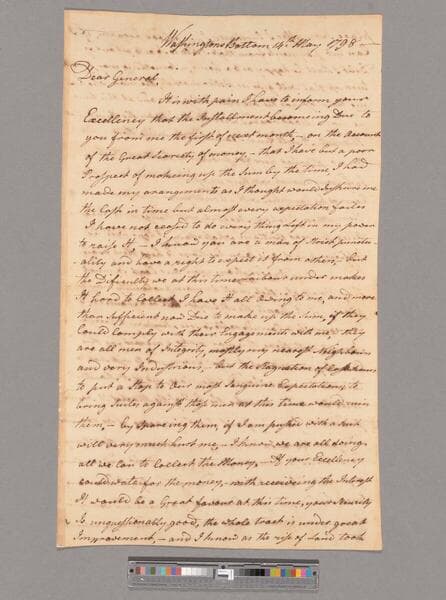 Washingtons Bottom 14th May 1798
Dear General,
It is with pain I have to inform your
Excellency that the Installment becoming Due to
you from me the first of next month, - on the Account
of the Great Scarcety of money - that I have but a poor
Prospect of makeing up the Sum by the time, I had
made my arangements as I thought would
the Cash in time but almost every expectation failes
I have not ceased to do every thing left in my power
to raise It, - I know you are a man of strict punctu-
ality and have a right to expect it from others, but
the Dificulty we at this time under makes
It hard to Collect I have It all owing to me, and more
than sufficient now Due to make up the Sum, if they
Could comply with their Engagements with me, they
are all men of Integrity, mostly my nearest Neighbours
and very Industrious, - but the Stagnation of
to put a Stop to Our most Sanguine Expectations, to
bring Suites against thos men at this time would ruin
them, - by spareing them, if I am pushed with a suit
will very much hurt me, - I know we are all doing
all we can to Collect the Money, - If your Excellency
could wate for the money, with receiveing the Interest
It would be a Great favour at this time, your Security
Is unquestionably good, the whole tract is under great
Improvement, - and I know as the rise of Land took